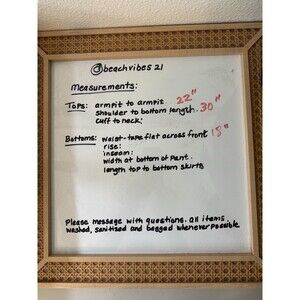 @beachvibes21
Measurements:
Tops: armpit to armpit 22"
shoulder to bottom length. 30"
cuff to neck:
Bottoms: waist-tape flat across front 18"
rise:
inseam:
width at bottom of pant.
length top to bottom skirts
Please message with questions. all items
washed, sanitized and bagged whenever possible